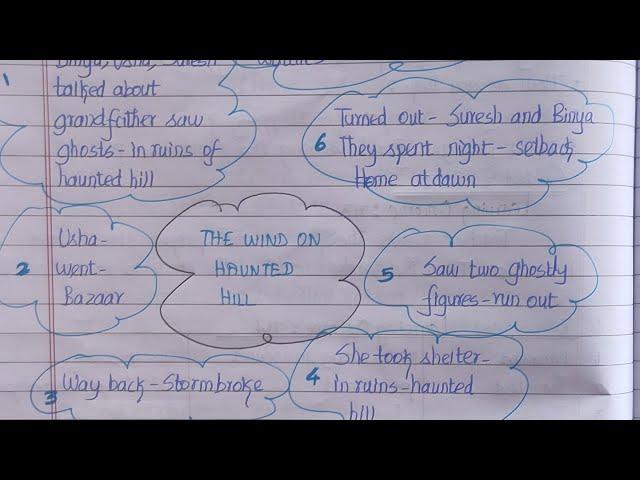 1
Binya, Usha, Suresh
talked about
grandfather saw
ghosts - in ruins of
haunted hill
2
Usha -
went -
Bazaar
3
Way back - Storm broke
4
She took shelter -
in ruins - haunted
hill
5
Saw two ghostly
figures - run out
6
Turned out - Suresh and Binya
They spent night - setback
Home at dawn
THE WIND ON
HAUNTED
HILL